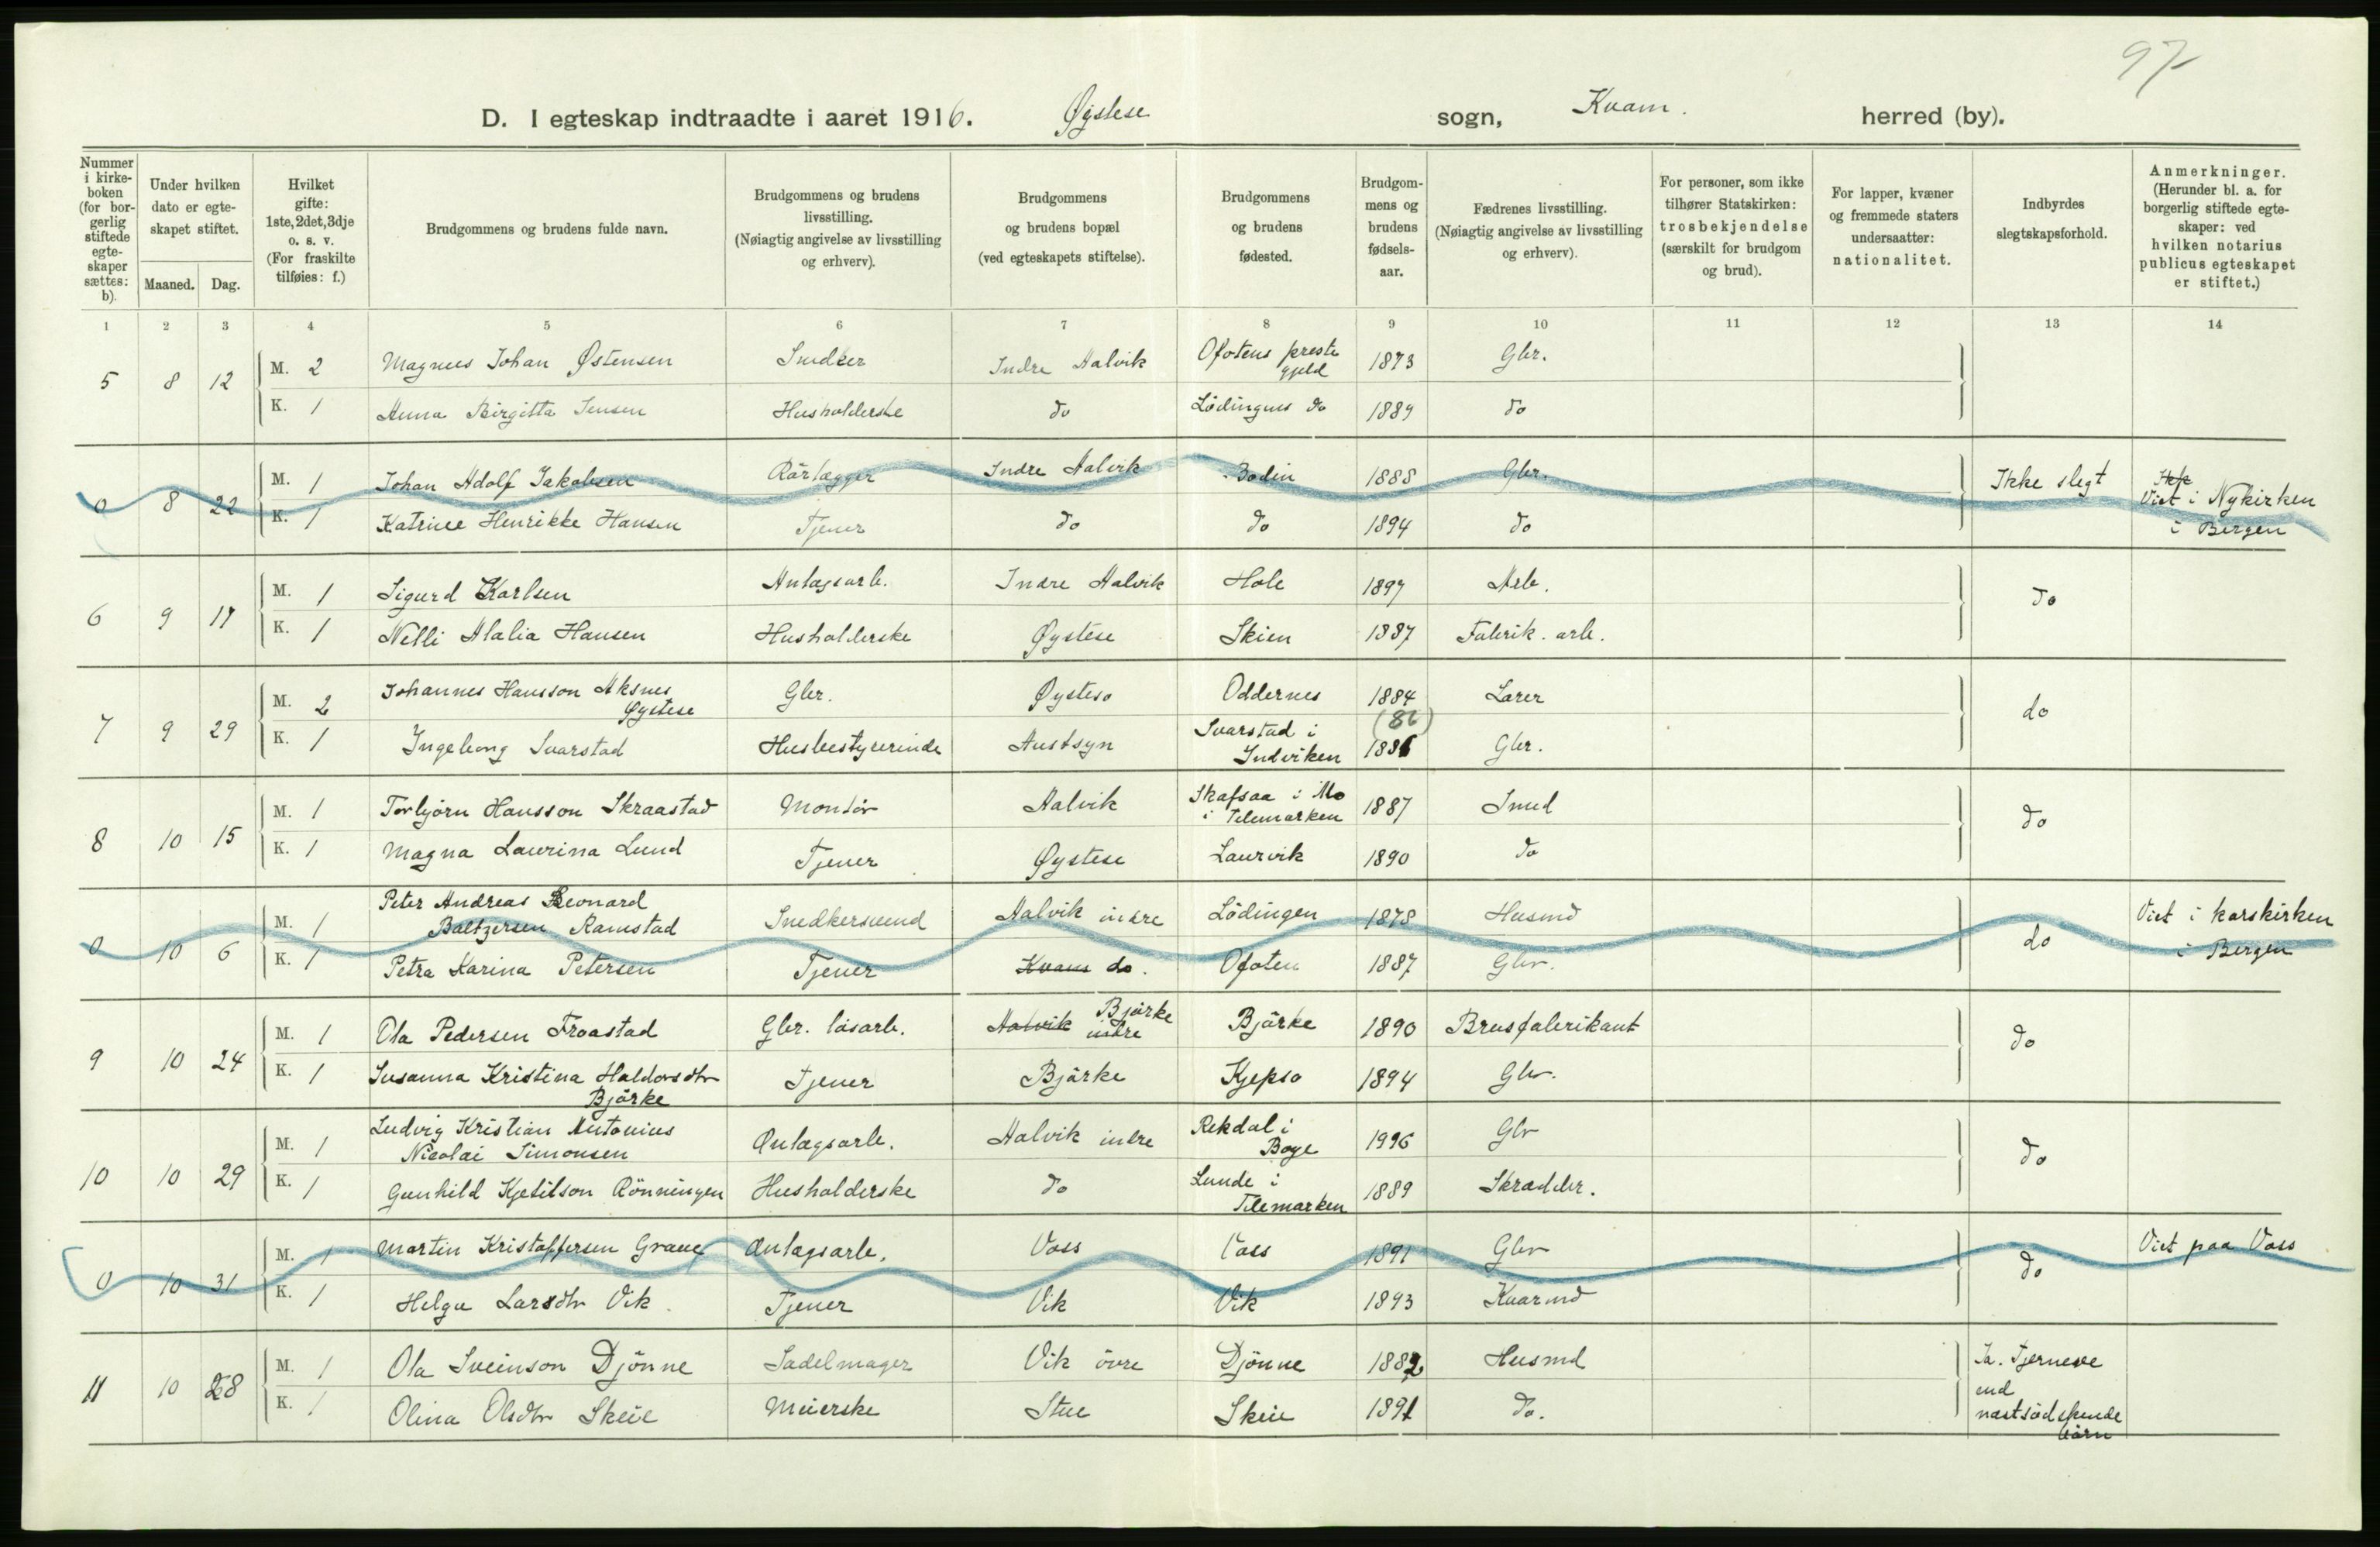 97
D. I egteskap indtraadte i aaret 1916. Øystese sogn, Kvam. herred (by).
Nummer i kirke-boken (for bor-gerlig stiftede egte-skaper sættes: b).
Under hvilken dato er egte-skapet stiftet.
Maaned. Dag.
Hvilket gifte: 1ste, 2det, 3dje o. s. v. (For fraskilte tilføies: f.)
Brudgommens og brudens fulde navn.
Brudgommens og brudens livsstilling. (Nøiagtig angivelse av livsstilling og erhverv).
Brudgommens og brudens bopæl (ved egteskapets stiftelse).
Brudgommens og brudens fødested.
Brudgom-mens og brudens fødsels-aar.
Fædrenes livsstilling. (Nøiagtig angivelse av livsstilling og erhverv).
For personer, som ikke tilhører Statskirken: trosbekjendelse (særskilt for brudgom og brud).
For lapper, kvæner og fremmede staters undersaatter: nationalitet.
Indbyrdes slegtskapsforhold.
Anmerkninger. (Herunder bl. a. for borgerlig stiftede egte-skaper: ved hvilken notarius publicus egteskapet er stiftet.)
1 2 3 4 5 6 7 8 9 10 11 12 13 14
5 8 12 M. 2 Magnus Johan Østensen Snedker Indre Aalvik Ofotens preste gjeld 1873 Gbr.
K. 1 Anna Birgitta Jensen Husholderske do Lödingens do 1889 do
0 8 22 M. 1 Johan Adolf Jakobsen Rörlægger Indre Aalvik Bodin 1888 Gbr. Ikke slegt Viet i Nykirken
K. 1 Katrine Henrikke Hansen Tjener do do 1894 do i Bergen
6 9 17 M. 1 Sigurd Karlsen Anlagsarb. Indre Aalvik Hole 1897 Arb. do
K. 1 Nelli Alalia Hansen Husholderske Øystese Skien 1887 Fabrik. arb.
7 9 29 M. 2 Johannes Hansson Aksnes Øystese Gbr. Øystese Oddernes 1884 Lærer do
(86)
K. 1 Ingeborg Svarstad Husbestyrerinde Austsyn Svarstad i Indviken 1886 Gbr.
8 10 15 M. 1 Torbjörn Hansson Skraastad Montör Aalvik Skafsaa i Mo i Telemarken 1887 Smed do
K. 1 Magna Laurina Lund Tjener Øystese Laurvik 1890 do
0 10 6 M. 1 Peter Andreas Leonard Baltzersen Ramstad Snedkersvend Aalvik indre Lödingen 1878 Husmd do Viet i korskirken
K. 1 Petra Karina Petersen Tjener Kvam do. Ofoten 1887 Gbr. i Bergen
9 10 24 M. 1 Ola Pedersen Froastad Gbr. lösarb. Aalvik indre Bjørke Bjørke 1890 Brusfabrikant do
K. 1 Susanna Kristina Haldorsdtr Bjørke Tjener Bjørke Kjepso 1894 Gbr.
10 10 29 M. 1 Ludvig Kristian Antonius Nicolai Simonsen Anlagsarb. Aalvik indre Rekdal i Boge 1996 Gbr do
K. 1 Gunhild Kjetilson Rönningen Husholderske do Lunde i Telemarken 1889 Skrædder.
0 10 31 M. 1 Martin Kristoffersen Graue Anlagsarb. Voss Voss 1891 Gbr do Viet paa Voss
K. 1 Helga Larsdtr Vik Tjener Vik Vik 1893 Kvarmd
11 10 28 M. 1 Ola Sveinson Djönne Sadelmager Vik övre Djönne 1882 Husmd Ja. Fjernere end næstsödskende börn
K. 1 Olina Olsdtr Skeie Meierske Stue Skeie 1891 do.